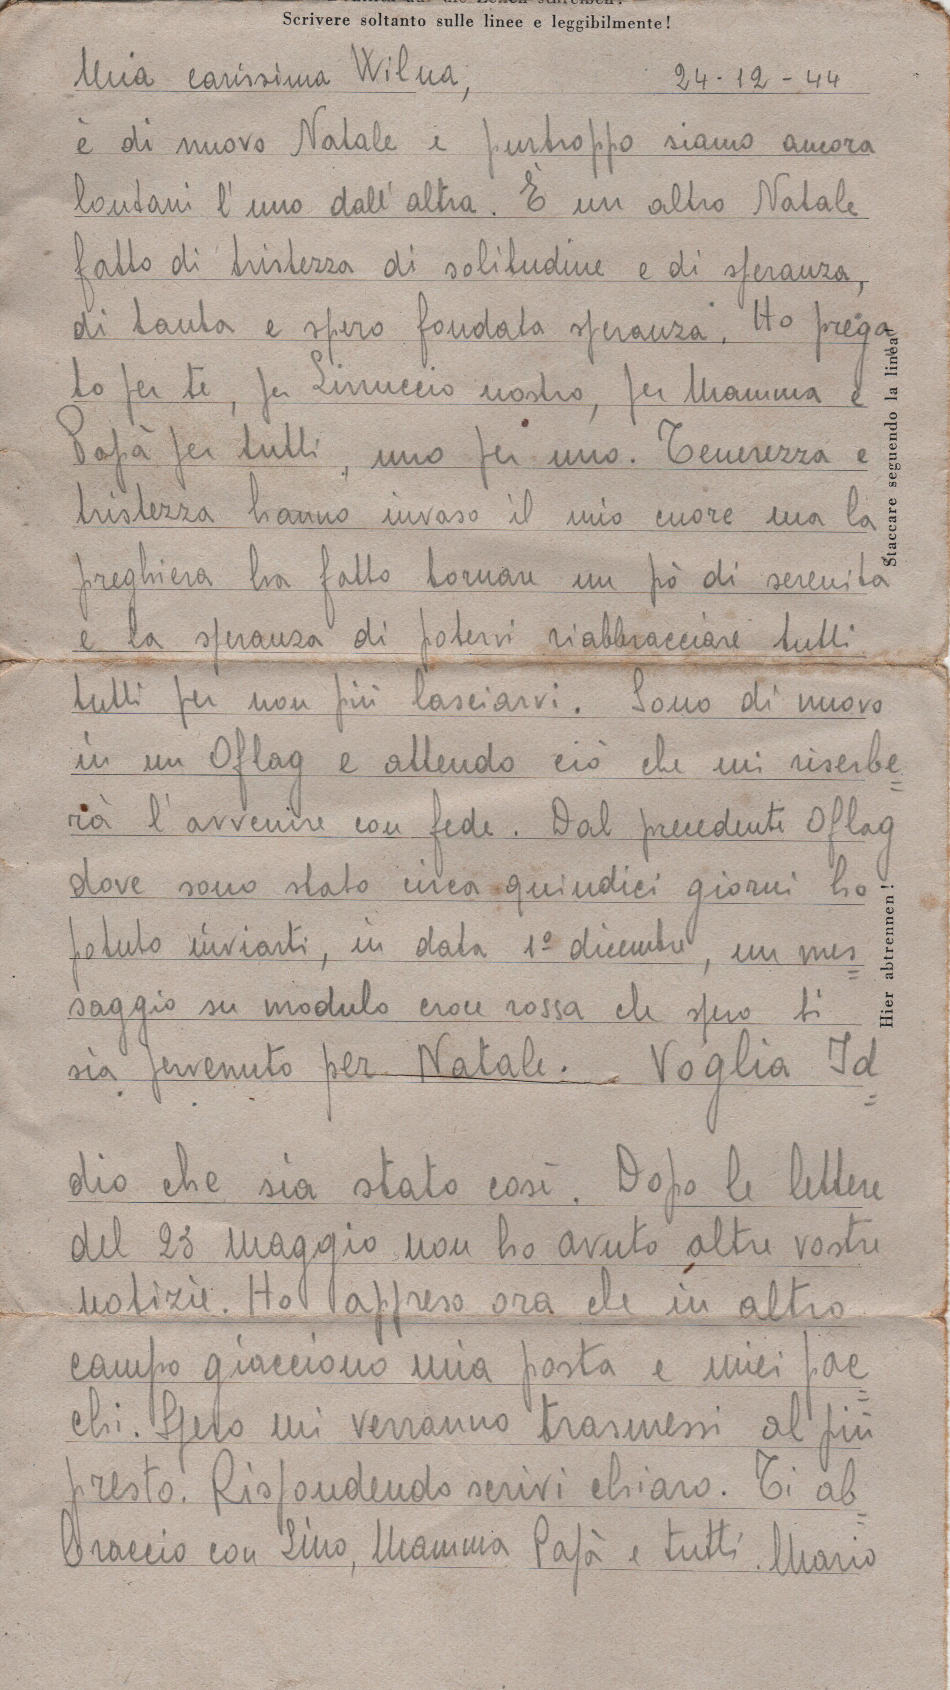 Scrivere soltanto sulle linee e leggibilmente!
Mia carissima Wilna, 24-12-44
è di nuovo Natale e purtroppo siamo ancora
lontani l'uno dall'altra. È un altro Natale
fatto di tristezza di solitudine e di speranza,
di tanta e spero fondata speranza. Ho prega
to per te, per Linuccio nostro, per Mamma e
Papà per tutti, uno per uno. Tenerezza e
tristezza hanno invaso il mio cuore ma la
preghiera ha fatto tornare un pò di serenità
e la speranza di potervi riabbracciare tutti
tutti per non più lasciarvi. Sono di nuovo
in un Oflag e attendo ciò che mi riserbe=
rà l'avvenire con fede. Dal precedente Oflag
dove sono stato circa quindici giorni ho
potuto inviarti, in data 1º dicembre, un mes=
saggio su modulo croce rossa che spero ti
sia pervenuto per Natale. Voglia Id=
dio che sia stato così. Dopo le lettere
del 23 maggio non ho avuto altre vostre
notizie. Ho appreso ora che in altro
campo giacciono mia posta e miei pac=
chi. Spero mi verranno trasmessi al più
presto. Rispondendo scrivi chiaro. Ti ab=
braccio con Lino, Mamma Papà e tutti. Mario
Staccare seguendo la linea!
Hier abtrennen!